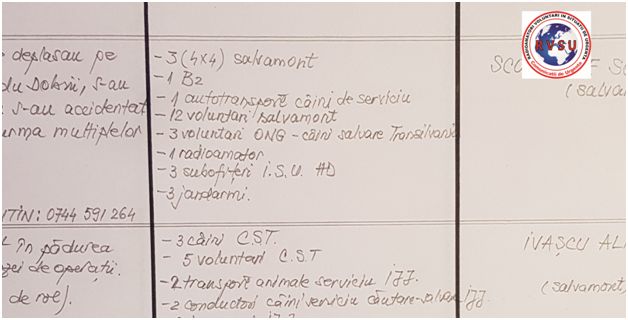 RADIOAMATORI VOLUNTARI IN SITUATII DE URGENTA
RVSU
Comunicatii de Urgenta
deplasau pe
s-au
s-au accidentat
urma multiplelor
TIN: 0744 591 264
în pădurea
de operații.
de noi).
- 3 (4x4) salvamont
- 1 B2
- 1 autotransportě câini de serviciu
- 12 voluntari salvamont
- 3 voluntari ONG - câini salvare Transilvania
- 1 radioamator
- 3 subofițeri I.S.U. HD
- 3 jandarmi.
- 3 câini C.S.T.
- 5 voluntari C.S.T
- 2 transportě animale serviciu IJJ.
- 2 conductori câini serviciu căutare-salvare IJJ.
(salva
IVAȘCU AL
(salvamont,